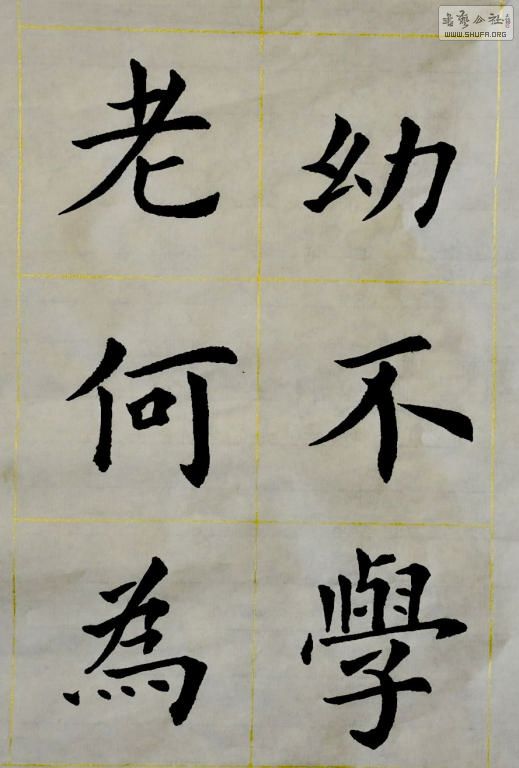 幼不學
老何為
書藝公社
WWW.SHUFA.ORG